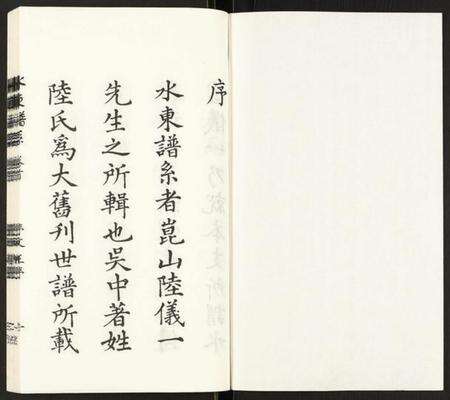 序
水東譜系者崑山陸儀一
先生之所輯也吳中著姓
陸氏爲大舊刋世譜所載
水東譜